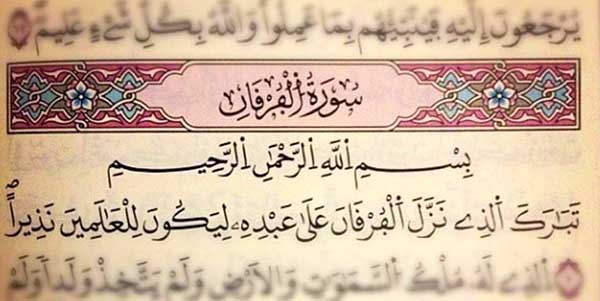 يُرْجَعُونَ إِلَيْهِ فَيُنَبِّئُهُم بِمَا عَمِلُوا۟ وَٱللَّهُ بِكُلِّ شَىْءٍ عَلِيمٌۢ
سُورَةُ ٱلْفُرْقَانِ
بِسْمِ ٱللَّهِ ٱلرَّحْمَٰنِ ٱلرَّحِيمِ
تَبَٰرَكَ ٱلَّذِے نَزَّلَ ٱلْفُرْقَانَ عَلَىٰ عَبْدِهِۦ لِيَكُونَ لِلْعَٰلَمِينَ نَذِيراً
ٱلَّذِے لَهُۥ مُلْكُ ٱلسَّمَٰوَٰتِ وَٱلْأَرْضِ وَلَمْ يَتَّخِذْ وَلَداً وَلَمْ